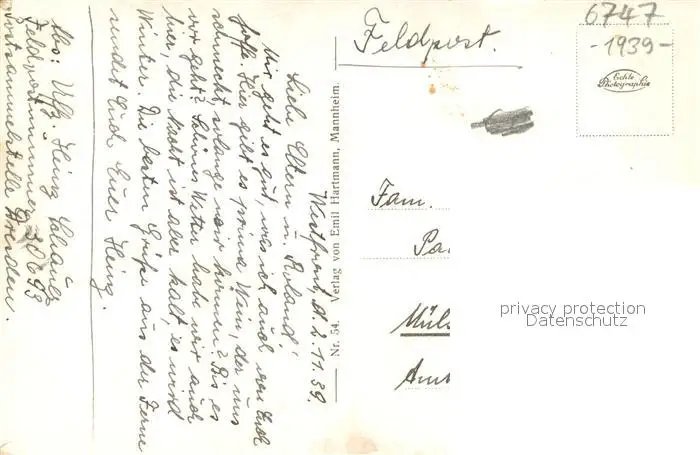 6747
-1939-
Feldpost.
Echte
Photographie
Fam.
Pa
Müls
Amt
privacy protection
Datenschutz
Nr. 54. Verlag von Emil Hartmann, Mannheim.
Westfront, d. 2.11.39.
Liebe Eltern u. Roland!
Mir geht es gut, was ich auch von Euch
hoffe. Hier gibt es prima Wein, der uns
schmeckt, solange wir können? Bis es
wo geht? Schönes Wetter habe wir auch
hier, die Nacht ist aber kalt, es wird
Winter. Die besten Grüße aus der Ferne
sendet Euch Euer Heinz.
Abs: Uffz. Heinz
Feldpostnummer 30693
Postsammelstelle Dresden.